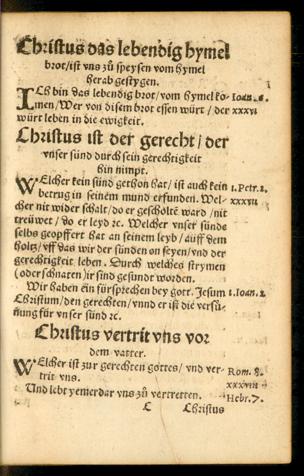 Christus das lebendig hymel
brot/ist vns zů speysen vom hymel
herab gestygen.
ICh bin das lebendig brot/vom hymel ko- Ioan. 6.
men/Wer von disem brot essen würt / der xxxvi
würt leben in die ewigkeit.
Christus ist der gerecht/der
vnser sünd durch sein gerechtigkeit
hin nimpt.
WElcher kein sünd gethon hat/ist auch kein 1. Petr. 2.
betrug in seinem mund erfunden. Wel- xxxvii
cher nit wider schalt/do er gescholtē ward /nit
treüwet/do er leyd ꝛc. Welcher vnser sünde
selbs geopffert hat an seinem leyb/auff dem
holtz/vff das wir der sünden on seyen/vnd der
gerechtigkeit leben. Durch welches strymen
(oder schnaten)ir sind gesundt worden.
Wir haben ein fürsprechen bey gott. Jesum 1. Ioan. 2
Christum/den gerechten/vnnd er ist die versü-
nung für vnser sünd ꝛc.
Christus vertrit vns vor
dem vatter.
WElcher ist zur gerechten gottes/vnd ver- Rom. 8.
trit vns. xxxviii
Und lebt yemerdar vns zů vertretten. Hebr. 7.
C Christus